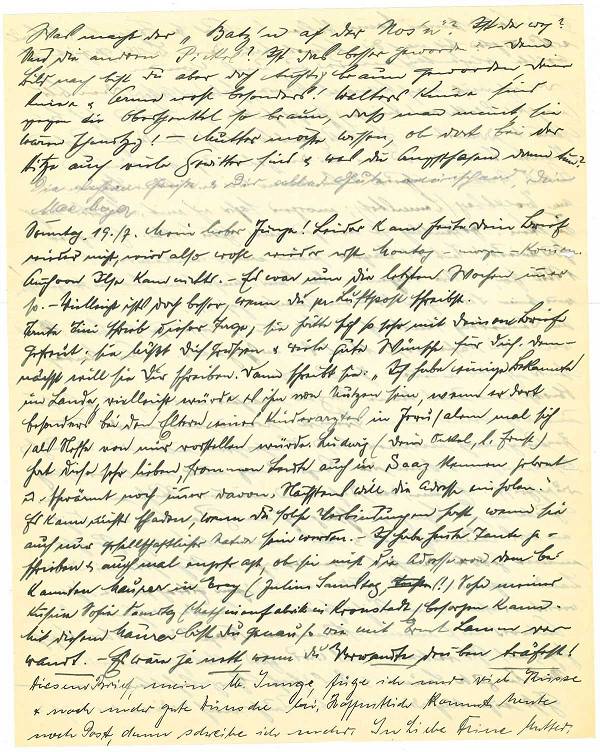 Was macht der „Batz'n auf der Nos'n"? Ist der weg?
Und die andern Pickel? Ist das besser geworden? – Dem
Bild nach bist du aber doch tüchtig braun geworden, deine
Kniee & Arme wohl besonders! Walters Kniee sind
gegen die Oberschenkel so braun, daß man meint, sie
wären schmutzig! – Mutter möchte wissen, ob dort bei der
Hitze auch viele Gewitter sind & was du
Sonntag, 19./7. Mein lieber Junge! Leider kam heute dein Brief
wieder nicht, wird also wohl wieder erst Montag – morgen – kommen.
Auch von Ilse kam nichts. – Es war nun die letzten Wochen immer
so. – Vielleicht ist's doch besser, wenn du per Luftpost schreibst.
Tante schrieb dieser Tage, sie hätte sich so sehr mit deinem Brief
gefreut; sie läßt dich grüßen & viele gute Wünsche für dich. Dem-
nächst will sie dir schreiben. Dann schreibt sie: „Ich habe einige Bekannte
im Lande, vielleicht würde es ihm von Nutzen sein, wenn er dort
besonders bei den Eltern eines Kinderarztes in Jerusalem mal sich
als Neffe von mir vorstellen würde. Ludwig (dein Onkel, l. Ernst)
hat diese sehr lieben, frommen Leute auch in Saaz kennen gelernt
u. schwärmt noch immer davon. Nächstens will die Adresse einholen."
Es kann nichts schaden, wenn du solche Verbindungen hast, wenn sie
auch nur gesellschaftlicher Natur sein werden. – Ich habe heute Tante ge-
schrieben & auch mal angefragt, ob sie mir die Adresse von dem be-
kannten Maurer in (Julius Samstag, ?) Sohn meiner
Kusine Sofie Samstag (in Kronstadt) besorgen kann.
Mit diesem Maurer bist du genau so wie mit Ernst Lamm ver-
wandt. – Es wäre ja nett, wenn du Verwandte drüben träfest!
Diesem Brief, mein lb. Junge, füge ich nur viele Küsse
& noch mehr gute Wünsche bei. Hoffentlich kommt heute
noch Post, dann schreibe ich mehr. In Liebe Deine Mutter.